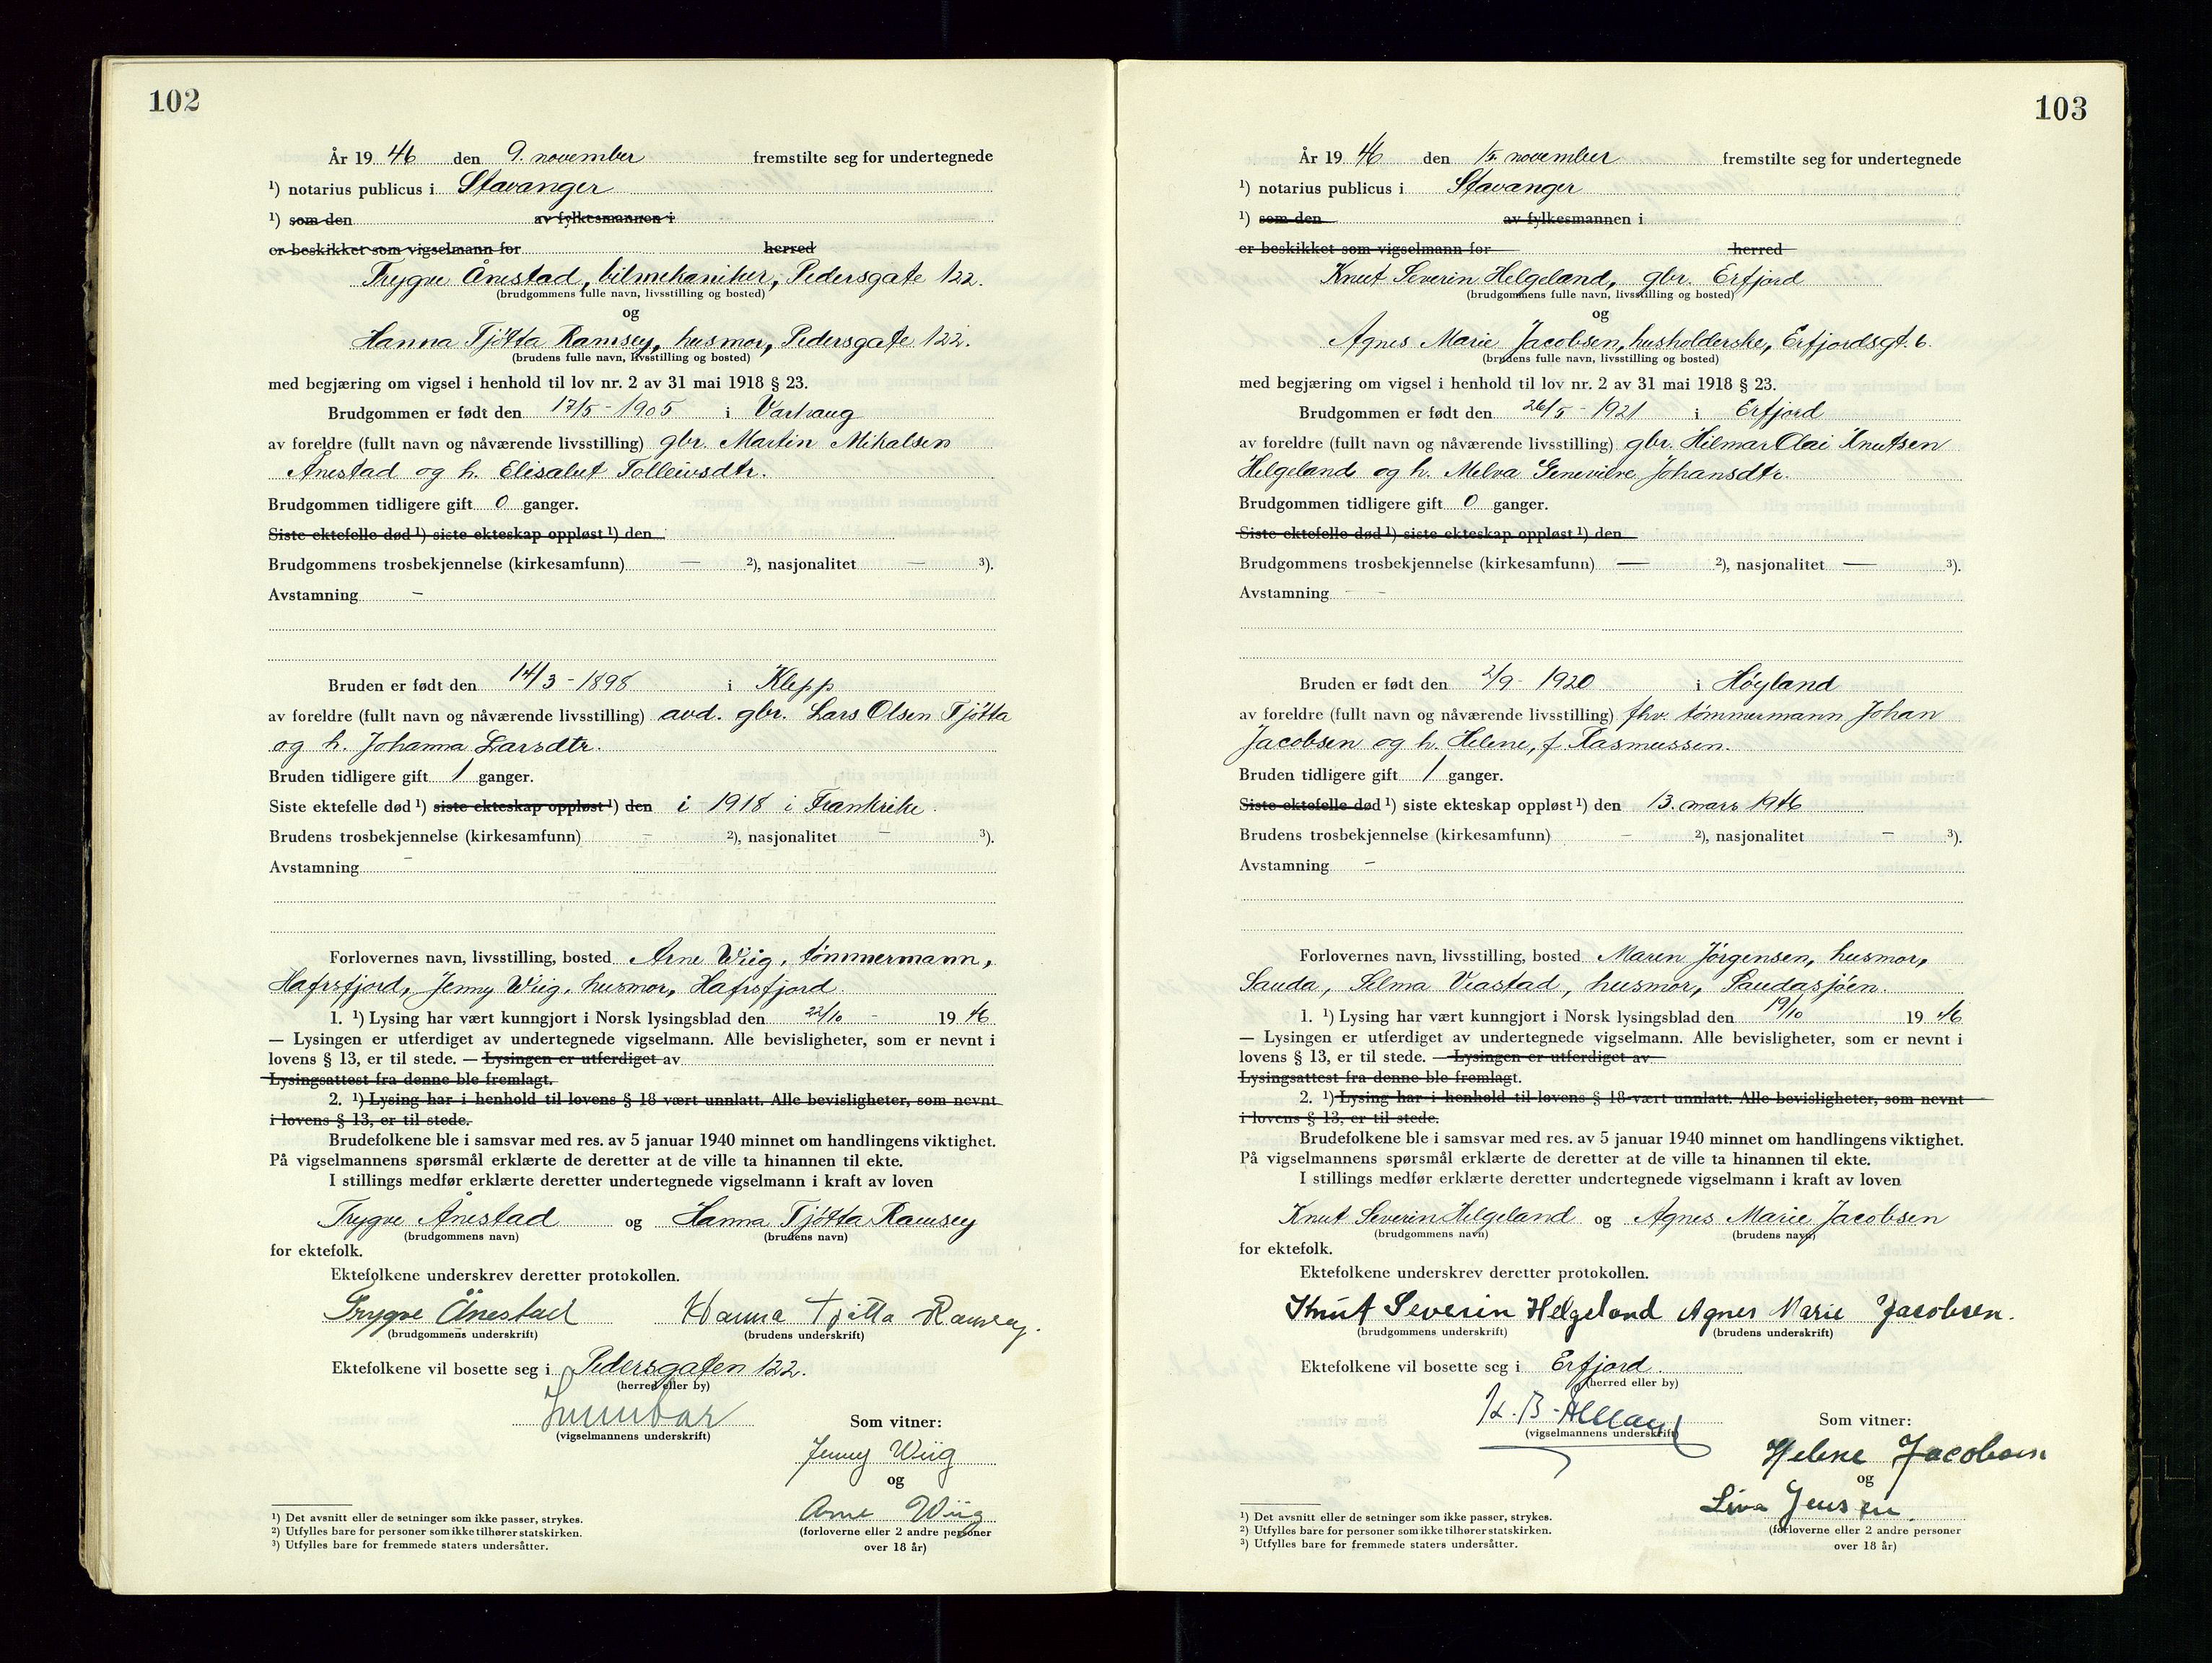 102
År 19 46 den 9. november fremstilte seg for undertegnede
¹) notarius publicus i Stavanger
¹) som den av fylkesmannen i
er beskikket som vigselmann for herred
Trygve Ånestad, bilmekaniker, Pedersgate 122.
(brudgommens fulle navn, livsstilling og bosted)
og
Hanna Tjøtta Ramsey, husmor, Pedersgate 122.
(brudens fulle navn, livsstilling og bosted)
med begjæring om vigsel i henhold til lov nr. 2 av 31 mai 1918 § 23.
Brudgommen er født den 17/5 - 1905 i Varhaug
av foreldre (fullt navn og nåværende livsstilling) gbr. Martin Mikalsen
Ånestad og h. Elisabet Tolleivsdtr.
Brudgommen tidligere gift 0 ganger.
Siste ektefelle død ¹) siste ekteskap oppløst ¹) den
Brudgommens trosbekjennelse (kirkesamfunn) — ²), nasjonalitet — ³).
Avstamning –
Bruden er født den 14/3 - 1898 i Klepp
av foreldre (fullt navn og nåværende livsstilling) avd. gbr. Lars Olsen Tjøtta
og h. Johanna Larsdtr.
Bruden tidligere gift 1 ganger.
Siste ektefelle død ¹) siste ekteskap oppløst ¹) den i 1918 i Frankrike.
Brudens trosbekjennelse (kirkesamfunn) – ²), nasjonalitet – ³).
Avstamning –
Forlovernes navn, livsstilling, bosted Arne Wiig, tømmermann,
Hafrsfjord, Jenny Wiig, husmor, Hafrsfjord.
1. ¹) Lysing har vært kunngjort i Norsk lysingsblad den 22/10 - 19 46
— Lysingen er utferdiget av undertegnede vigselmann. Alle bevisligheter, som er nevnt i
lovens § 13, er til stede. — Lysingen er utferdiget av
Lysingsattest fra denne ble fremlagt.
2. ¹) Lysing har i henhold til lovens § 18 vært unnlatt. Alle bevisligheter, som nevnt
i lovens § 13, er til stede.
Brudefolkene ble i samsvar med res. av 5 januar 1940 minnet om handlingens viktighet.
På vigselmannens spørsmål erklærte de deretter at de ville ta hinannen til ekte.
I stillings medfør erklærte deretter undertegnede vigselmann i kraft av loven
Trygve Ånestad og Hanna Tjøtta Ramsey
(brudgommens navn) (brudens navn)
for ektefolk.
Ektefolkene underskrev deretter protokollen.
Trygve Ånestad Hanna Tjøtta Ramsey.
(brudgommens underskrift) (brudens underskrift)
Ektefolkene vil bosette seg i Pedersgaten 122.
(herred eller by)
(vigselmannens underskrift)
Som vitner:
Jenny Wiig
og
Arne Wiig
(forloverne eller 2 andre personer
over 18 år)
¹) Det avsnitt eller de setninger som ikke passer, strykes.
²) Utfylles bare for personer som ikke tilhører statskirken.
³) Utfylles bare for fremmede staters undersåtter.
103
År 19 46 den 15. november fremstilte seg for undertegnede
¹) notarius publicus i Stavanger
¹) som den av fylkesmannen i
er beskikket som vigselmann for herred
Knut Severin Helgeland, gbr. Erfjord
(brudgommens fulle navn, livsstilling og bosted)
og
Agnes Marie Jacobsen, husholderske, Erfjordsgt. 6.
(brudens fulle navn, livsstilling og bosted)
med begjæring om vigsel i henhold til lov nr. 2 av 31 mai 1918 § 23.
Brudgommen er født den 26/5 - 1921 i Erfjord
av foreldre (fullt navn og nåværende livsstilling) gbr. Hilmar Olai Knutsen
Helgeland og h. Melva Genevieve Johansdtr.
Brudgommen tidligere gift 0 ganger.
Siste ektefelle død ¹) siste ekteskap oppløst ¹) den
Brudgommens trosbekjennelse (kirkesamfunn) — ²), nasjonalitet — ³).
Avstamning –
Bruden er født den 2/9 - 1920 i Høyland
av foreldre (fullt navn og nåværende livsstilling) fhv. tømmermann Johan
Jacobsen og h. Helene, f. Rasmussen.
Bruden tidligere gift 1 ganger.
Siste ektefelle død ¹) siste ekteskap oppløst ¹) den 13. mars 1946
Brudens trosbekjennelse (kirkesamfunn) – ²), nasjonalitet – ³).
Avstamning –
Forlovernes navn, livsstilling, bosted Maren Jørgensen, husmor,
Sauda, Selma Viastad, husmor, Saudasjøen.
1. ¹) Lysing har vært kunngjort i Norsk lysingsblad den 19/10 19 46
— Lysingen er utferdiget av undertegnede vigselmann. Alle bevisligheter, som er nevnt i
lovens § 13, er til stede. — Lysingen er utferdiget av
Lysingsattest fra denne ble fremlagt.
2. ¹) Lysing har i henhold til lovens § 18 vært unnlatt. Alle bevisligheter, som nevnt
i lovens § 13, er til stede.
Brudefolkene ble i samsvar med res. av 5 januar 1940 minnet om handlingens viktighet.
På vigselmannens spørsmål erklærte de deretter at de ville ta hinannen til ekte.
I stillings medfør erklærte deretter undertegnede vigselmann i kraft av loven
Knut Severin Helgeland og Agnes Marie Jacobsen
(brudgommens navn) (brudens navn)
for ektefolk.
Ektefolkene underskrev deretter protokollen.
Knut Severin Helgeland Agnes Marie Jacobsen.
(brudgommens underskrift) (brudens underskrift)
Ektefolkene vil bosette seg i Erfjord.
(herred eller by)
(vigselmannens underskrift)
Som vitner:
Helene Jacobsen
og
Liva Jensen.
(forloverne eller 2 andre personer
over 18 år)
¹) Det avsnitt eller de setninger som ikke passer, strykes.
²) Utfylles bare for personer som ikke tilhører statskirken.
³) Utfylles bare for fremmede staters undersåtter.